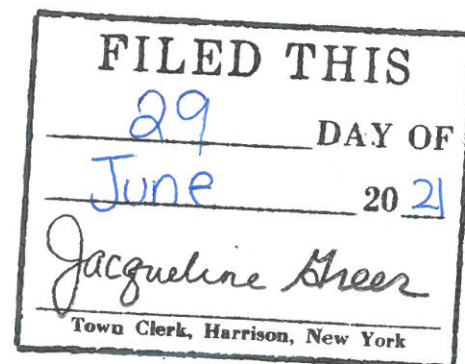 FILED THIS
29 DAY OF
June 20 21
Jacqueline Greer
Town Clerk, Harrison, New York